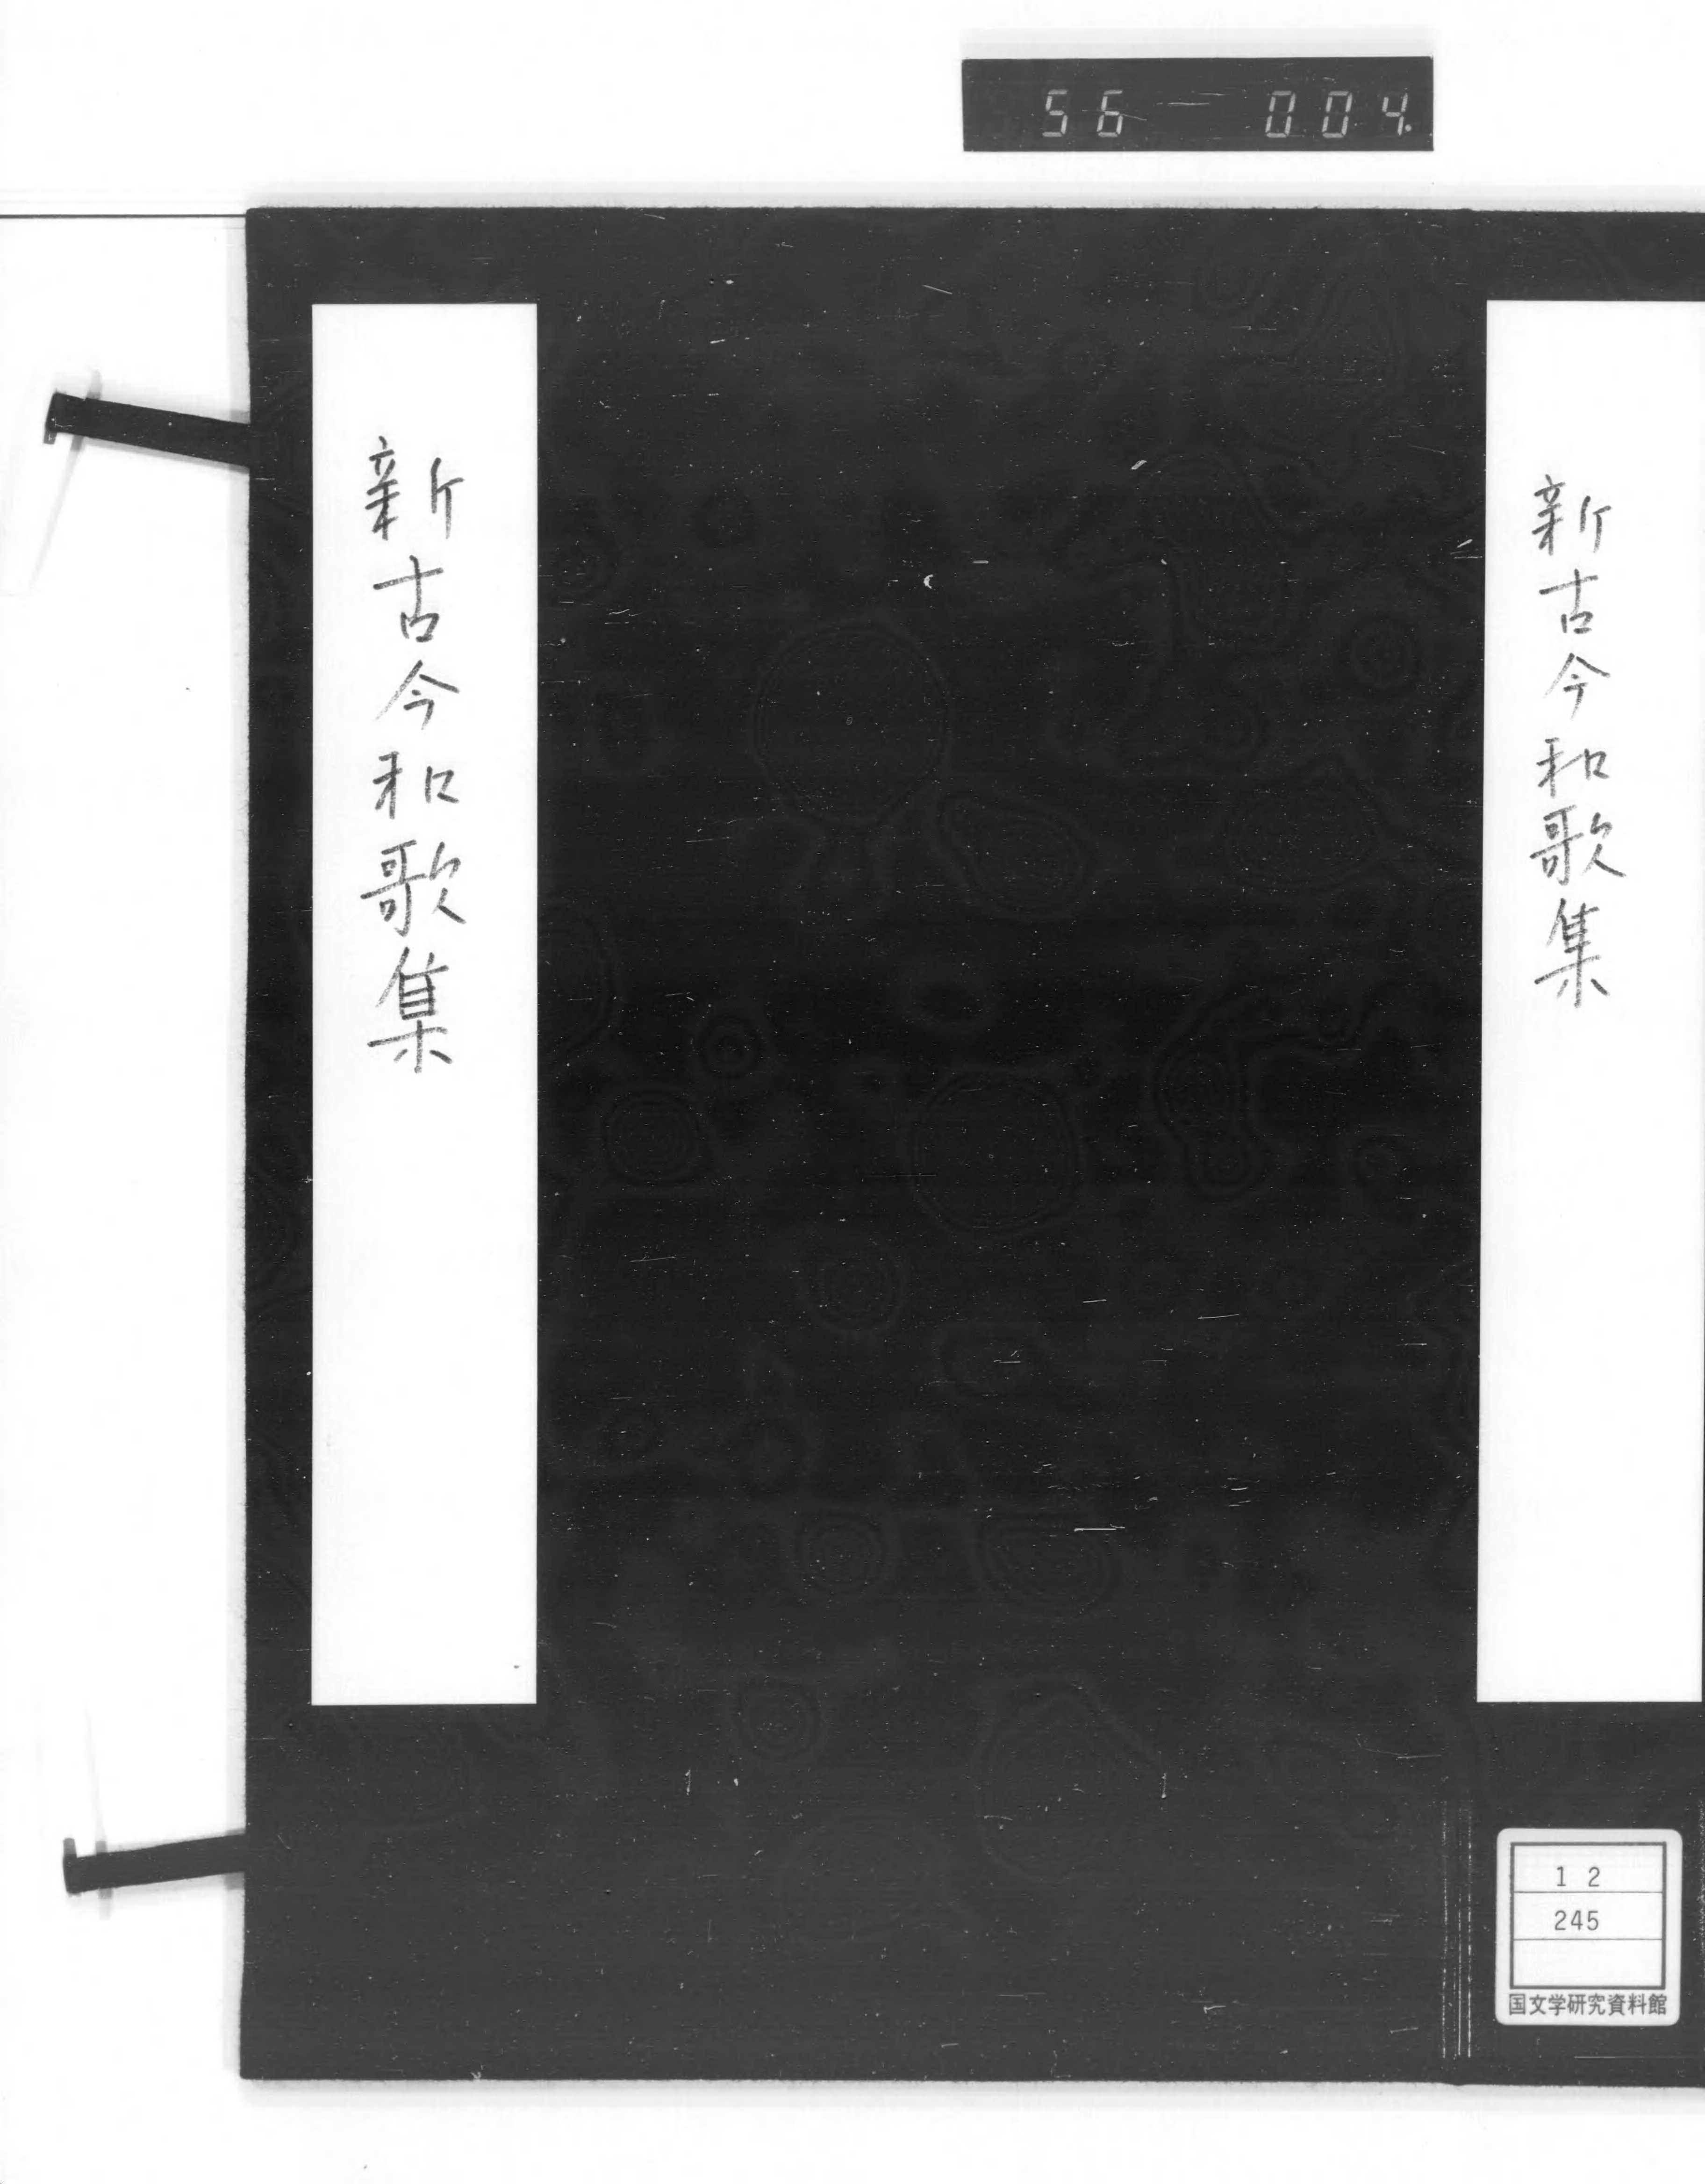 56 - 004.
新古今和歌集
新古今和歌集
12
245
国文学研究資料館